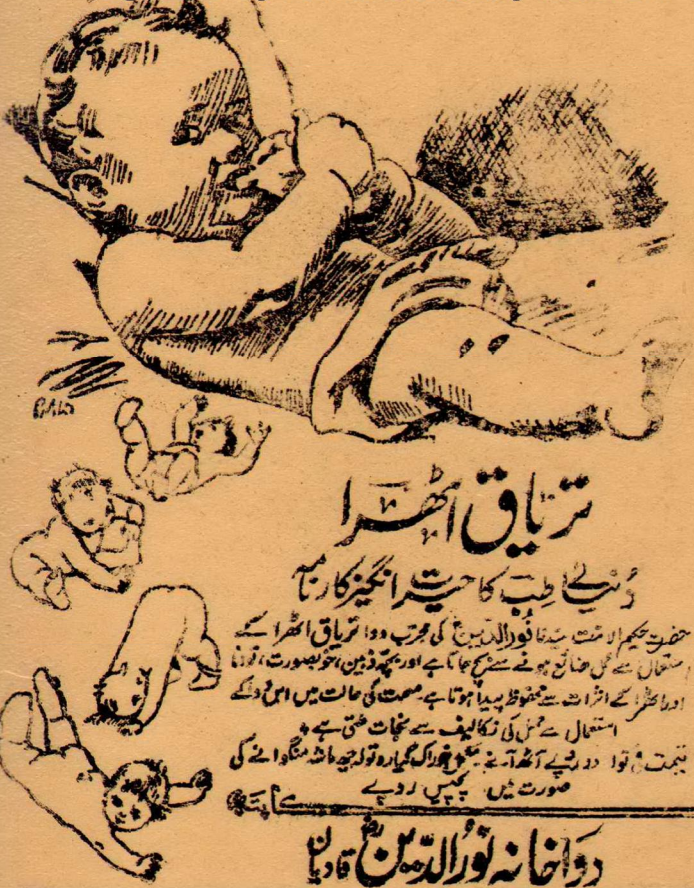 تریاق اٹھرا
دنیائے طب کا حیرت انگیز کارنامہ
حضرت حکیم الامت سیدنا نورالدینؓ کی مجرب دوا تریاق اٹھرا کے
استعمال سے حمل ضائع ہونے سے بچ جاتا ہے اور بچہ ذہین، خوبصورت، توانا
اور اٹھرا کے اثرات سے محفوظ پیدا ہوتا ہے۔ صحت کی حالت میں اس دوا کے
استعمال سے حمل کی تکالیف سے نجات ملتی ہے۔
قیمت فی تولہ دو روپے آٹھ آنے۔ مکمل خوراک گیارہ تولہ چھ ماشہ منگوانے کی
صورت میں پچیس روپے
دواخانہ نورالدینؓ قادیان